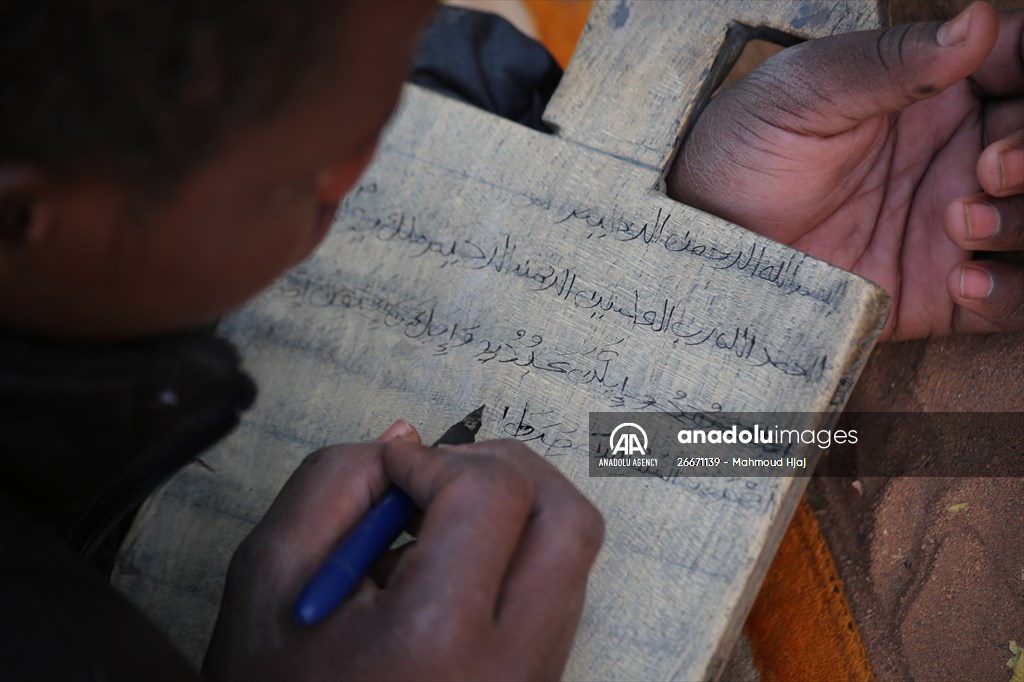 بسم الله الرحمن الرحيم
الحمد لله رب العلمين الرحمن الرحيم ملك يوم
إياك نعبد وإياك نستعين
صرط ا
AA
ANADOLU AGENCY
anadoluimages
26671139 - Mahmoud Hjaj